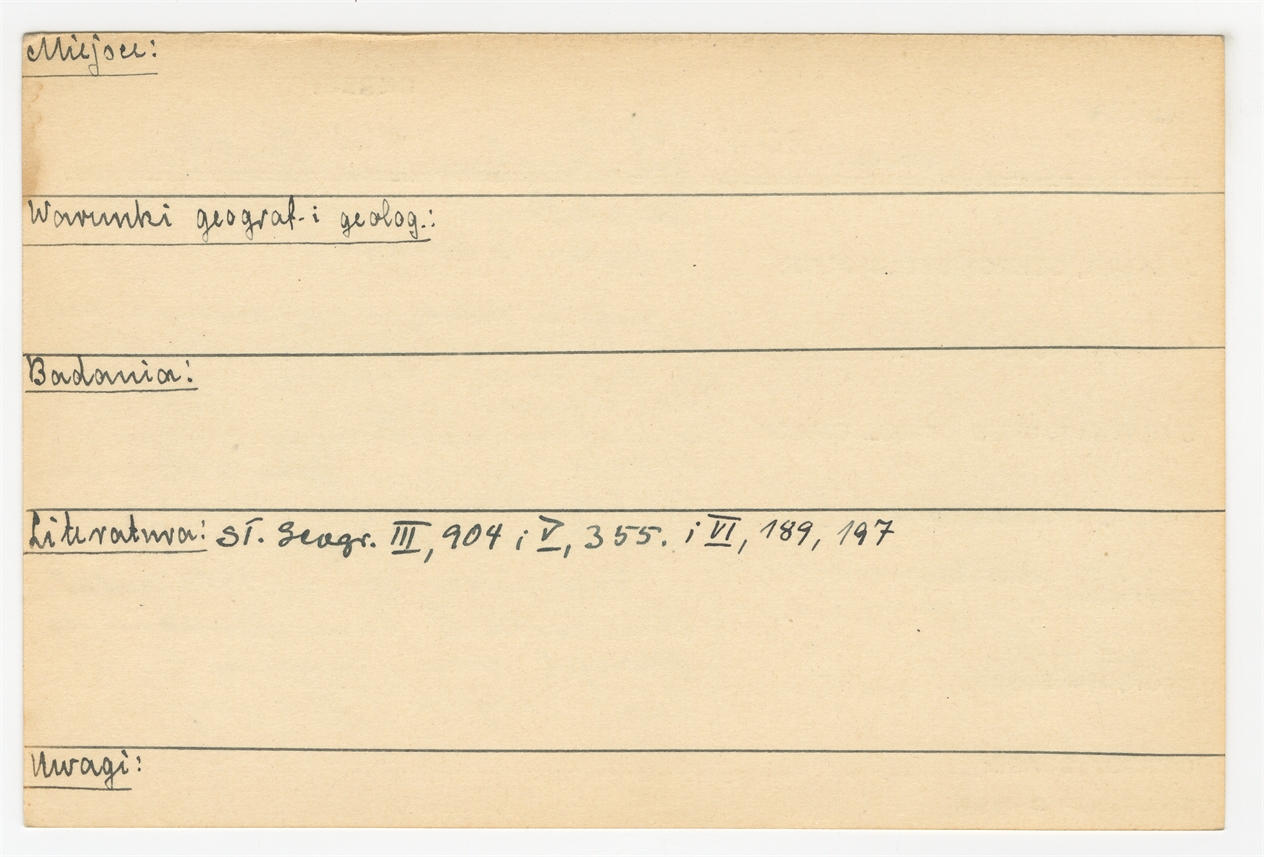 Miejsce:
Warunki geograf. i geolog.:
Badania:
Literatura: Sł. Geogr. III, 904 i V, 355. i VI, 189, 197
Uwagi: